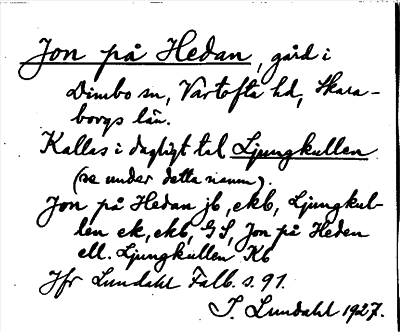 Jon på Hedan, gård i
Dimbo sn, Vartofta hd, Skara-
borgs län.
Kallas i dagligt tal Ljungkullen
(se under detta namn).
Jon på Hedan jb, ekb, Ljungkul-
len ek, ekb, GS, Jon på Heden
ell. Ljungkullen Kb
Jfr Lundahl Falb. s. 91.
I. Lundahl 1927.